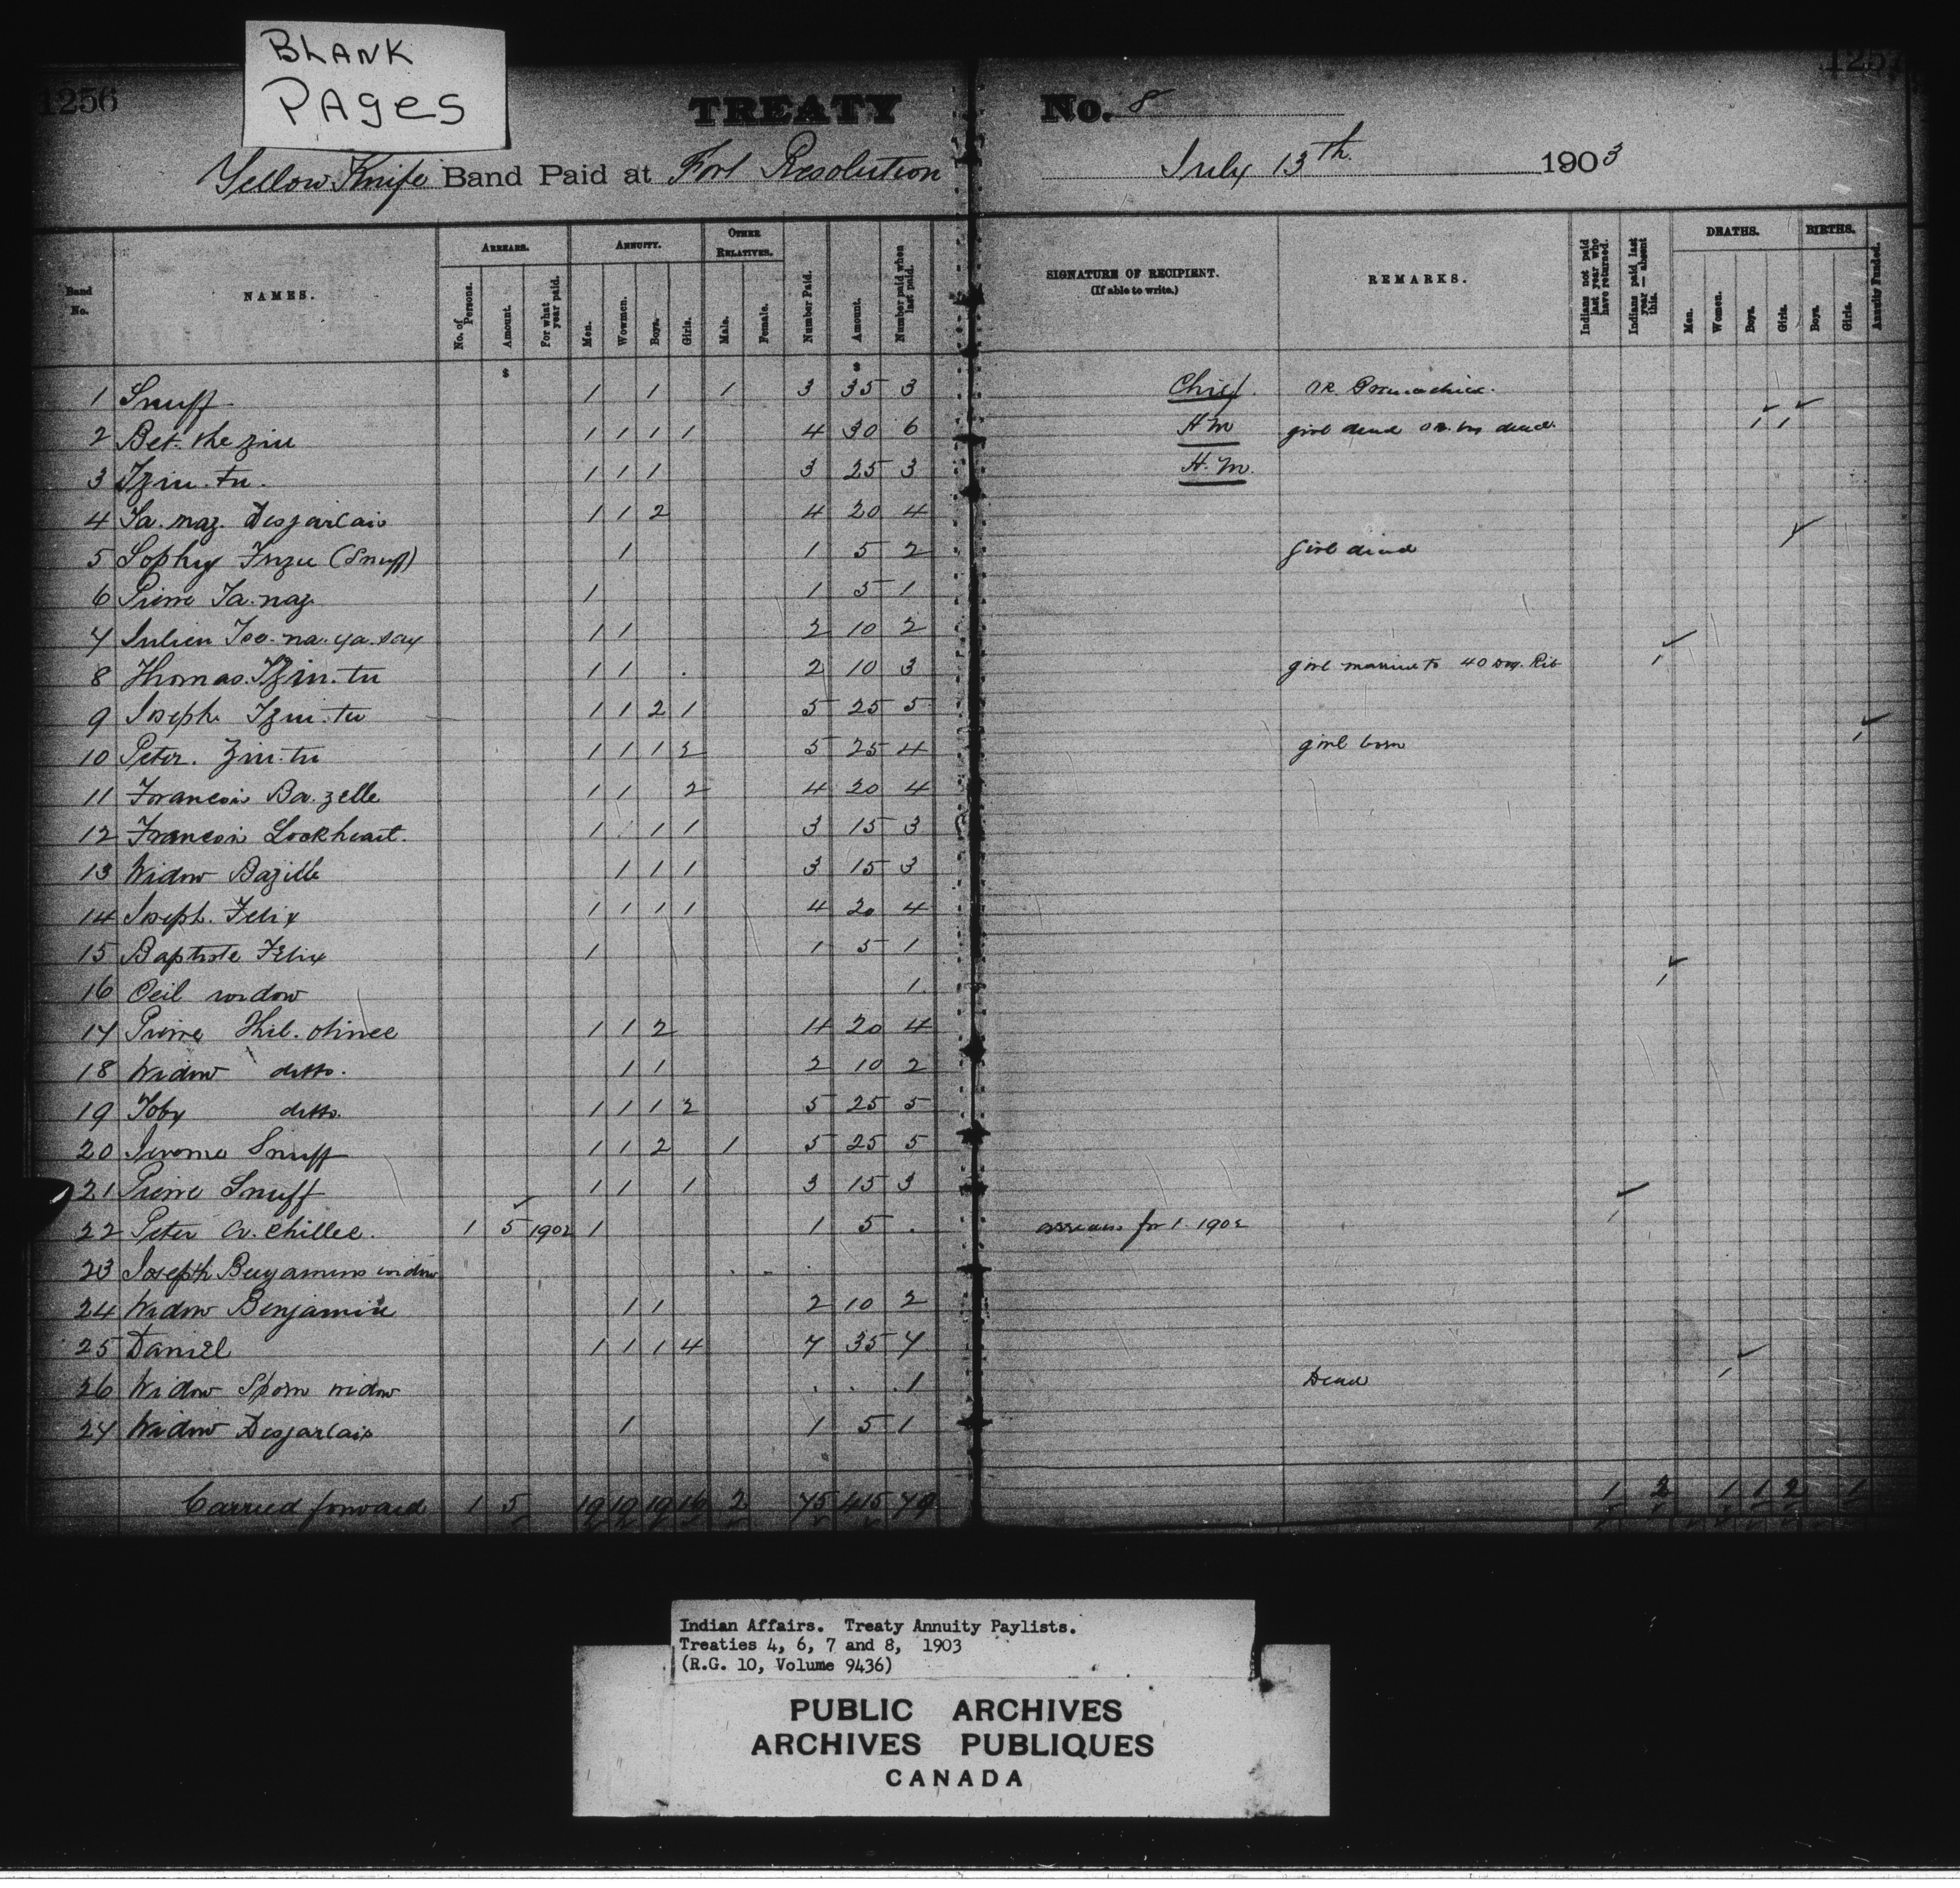 BLANK
PAGES
1256
1257
TREATY No. 8
Yellow Knife Band Paid at Fort Resolution July 13th. 1903
Band No.
NAMES.
ARREARS.
No. of Persons.
Amount.
For what year paid.
ANNUITY.
Men.
Wowmen.
Boys.
Girls.
OTHER RELATIVES.
Male.
Female.
Number Paid.
Amount.
Number paid when last paid.
SIGNATURE OF RECIPIENT.
(If able to write.)
REMARKS.
Indians not paid last year who have returned.
Indians paid last year — absent this.
DEATHS.
Men.
Women.
Boys.
Girls.
BIRTHS.
Boys.
Girls.
Annuity Funded.
$ $
1 Snuff 1 1 1 3 35 3 Chief.
2 Bet. the ziu 1 1 1 1 4 30 6 H M girl dead boy dead. 1 1
3 Tziu. tu. 1 1 1 3 25 3 H. M.
4 Ta. naz. Desjarlais 1 1 2 4 20 4
5 Sophy (Snuff) 1 1 5 2 girl dead 1
6 Pierre Ta. naz. 1 1 5 1
7 Julien Tso. na. ya. say 1 1 2 10 2
8 Thomas. Tziu. tu 1 1 . 2 10 3 girl married to 40 Dog. Rib 1
9 Joseph. Tziu. tu 1 1 2 1 5 25 5
10 Peter. Ziu. tu 1 1 1 2 5 25 4 girl born 1
11 Francois Ba. zelle 1 1 2 4 20 4
12 Francois Lockheart. 1 1 1 3 15 3
13 Widow Bazille 1 1 1 3 15 3
14 Joseph. Felix 1 1 1 1 4 20 4
15 Baptiste Felix 1 1 5 1
16 Ceil widow 1 1
17 Pierre 1 1 2 4 20 4
18 Widow ditto. 1 1 2 10 2
19 Toby ditto. 1 1 1 2 5 25 5
20 Jerome Snuff 1 1 2 1 5 25 5
21 Pierre Snuff 1 1 1 3 15 3
22 Peter A. chillee. 1 5 1902 1 1 5 . arrears for 1 1902 1
23 Joseph Benjamins widow
24 Widow Benjamin 1 1 2 10 2
25 Daniel 1 1 1 4 7 35 7
26 Widow widow 1 Dead 1
27 Widow Desjarlais 1 1 5 1
Carried forward 1 5 19 19 19 16 2 75 415 79 1 2 1 1 2 1
Indian Affairs. Treaty Annuity Paylists.
Treaties 4, 6, 7 and 8, 1903
(R.G. 10, Volume 9436)
PUBLIC ARCHIVES
ARCHIVES PUBLIQUES
CANADA